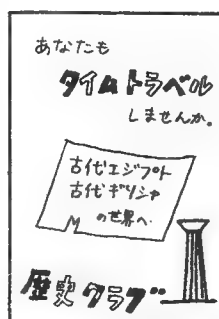 あなたも
タイムトラベル
しませんか。
古代エジプト
古代ギリシャ
の世界へ
歴史クラブ